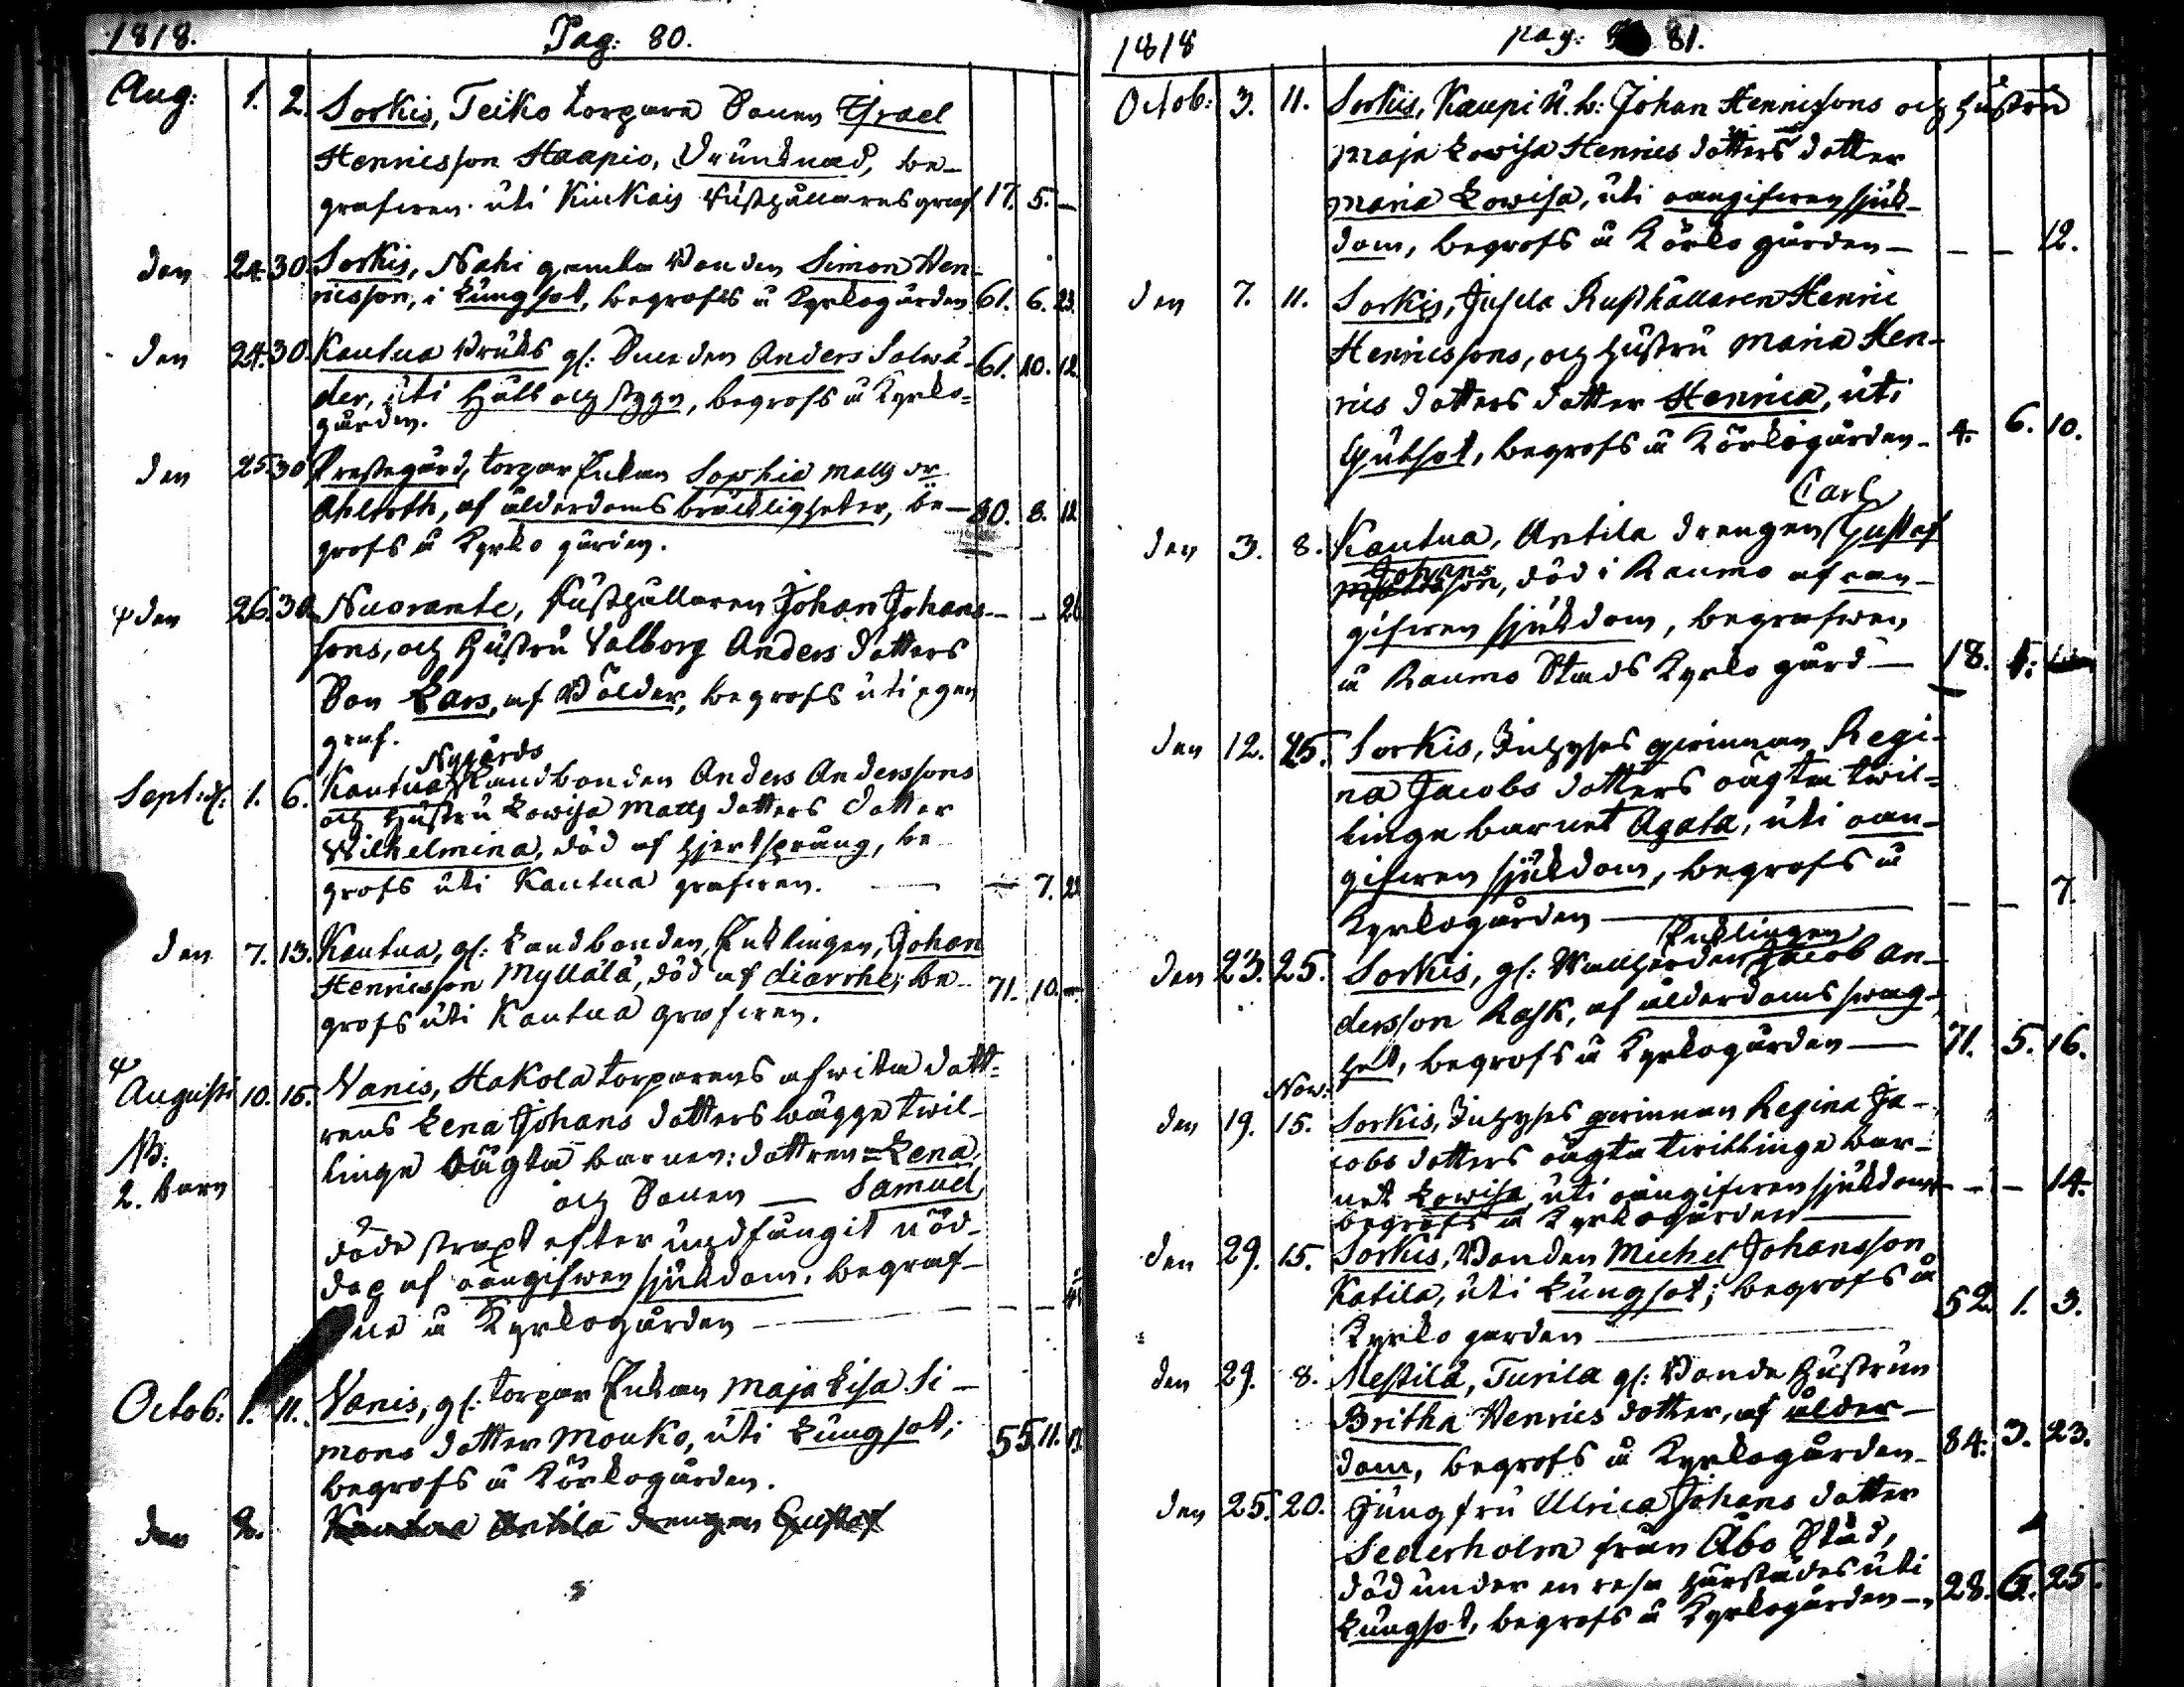 1818. Pag: 80.
Aug: 1. 2. Sorkis, Teiko torpare Sonen Israel
Henricsson Haapio, Drunknad, be-
grafwen uti Kiukais Rusthållares graf 17. 5. –
den 24. 30. Sorkis, Nahi gamla Bonden Simon Hen-
ricsson, i Lungsot, begrofs å Kyrkogården 61. 6. 23.
den 24. 30. Kautua Bruks gl: Smeden Anders Salwä- 61. 10. 12.
der, uti Håll och stygn, begrofs å Kyrko-
gården.
den 25. 30 Prestegård, torpar Enkan Sophia Matts dr
Ahlroth, af ålderdoms bräckligheter, be- 80. 8. 12
grofs å Kyrko gården.
den 26. 30. Nuoranto, Rusthållaren Johan Johans – – 26
sons, och Hustru Valborg Anders dotters
Son Lars, af Bölder, begrofs uti egen
graf.
Nygårds
Sept: d: 1. 6. Kautua Landbonden Anders Anderssons
och Hustru Lowisa Matts dotters dotter
Wilhelmina, död af hjertsprång, be-
grofs uti Kautua grafwen. – – 7. 22
den 7. 13. Kautua, gl: Landbonden, Enklingen, Johan
Henricsson Myllälä, död af diarrhe; be- 71. 10. –
grofs uti Kautua grafwen.
Augusti 10. 15. Vanis, Hakola torparens afwita dott-
rens Lena Johans dotters bägge twil-
NB: linge oägta barnen: dottren = Lena
2. barn och Sonen — Samuel,
döde straxt efter undfångit nöd-
dop af oangifwen sjukdom, begraf-
ne å Kyrkogården – –
Octob: 1. 11. Vanis, gl: torpar Enkan Maja Lisa Si-
mons dotter Mouko, uti Lungsot; 55 11.
begrofs å Körkogården.
den 2. Kautua Antila drengen Gustaf
1818 pag: 81.
Octob: 3. 11. Sorkis, Kaupi N. b: Johan Henricssons och Hustru
Maja Lowisa Henrics dotters dotter
Maria Lowisa, uti oangifwen sjuk-
dom, begrofs å Körko gården – – – 12.
den 7. 11. Sorkis, Jusela Rusthållaren Henric
Henricssons, och Hustru Maria Hen-
rics dotters dotter Henrica, uti
Gulsot, begrofs å Körkogården – 4. 6. 10.
Carl
den 3. 8. Kautua, Antila drengen Gustaf
Johansson, död i Raumo af oan-
gifwen sjukdom, begrafwen
å Raumo Stads Kyrko gård – 18.
den 12. 25. Sorkis, Inhyses qwinnan Regi-
na Jacobs dotters oägta twil-
linge barnet Agata, uti oan-
gifwen sjukdom, begrofs å
Kyrkogården – – – 7.
Enklingen
den 23. 25. Sorkis, gl: Wallherden Jacob An-
dersson Rask, af ålderdoms swag-
het, begrofs å Kyrkogården – 71. 5. 16.
Now:
den 19. 15. Sorkis, Inhyses qwinnan Regina Ja-
cobs dotters oägta twillinge bar-
net Lowisa, uti oangifwen sjukdom – – 14.
begrofs å Kyrkogården –
den 29. 15. Sorkis, Bonden Michel Johansson
Katila, uti Lungsot; begrofs å 52. 1. 3.
Kyrko garden –
den 29. 8. Mestilä, Turila gl: Bonde Hustrun
Britha Henrics dotter, af ålder-
dom, begrofs å Kyrkogården – 84. 3. 23.
den 25. 20. Jungfru Ulrica Johans dotter
Sederholm från Åbo Stad,
död under en resa härstädes uti
Lungsot, begrofs å Kyrkogården – 28. 6. 25.